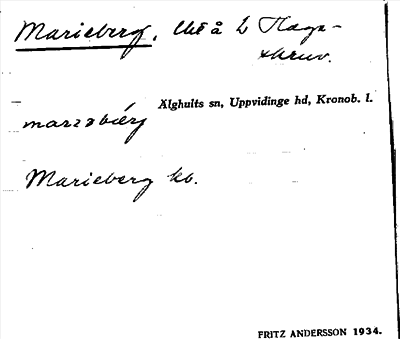 Marieberg, Utå L Haga-
skruv.
Älghults sn, Uppvidinge hd, Kronob. l.
Marieberg kb.
FRITZ ANDERSSON 1934.